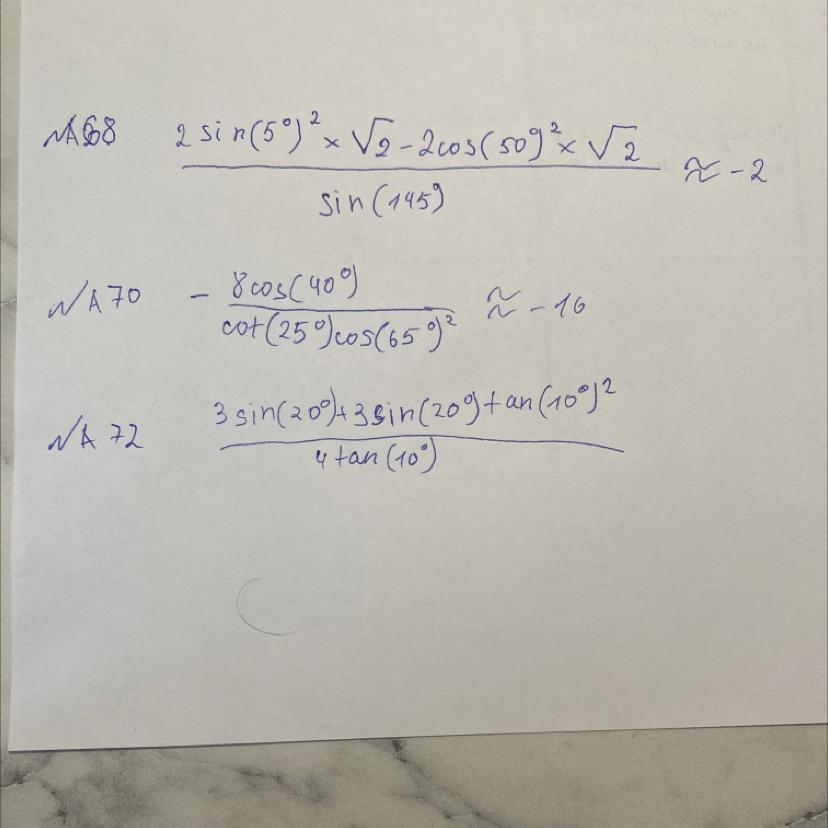 №A68 2 sin(5°)² × √2 - 2cos(50°)² × √2 / sin(145°) ≈ -2
№A70 - 8cos(40°) / cot(25°)cos(65°)² ≈ -16
№A72 3 sin(20°)+3sin(20°)tan(10°)² / 4 tan(10°)